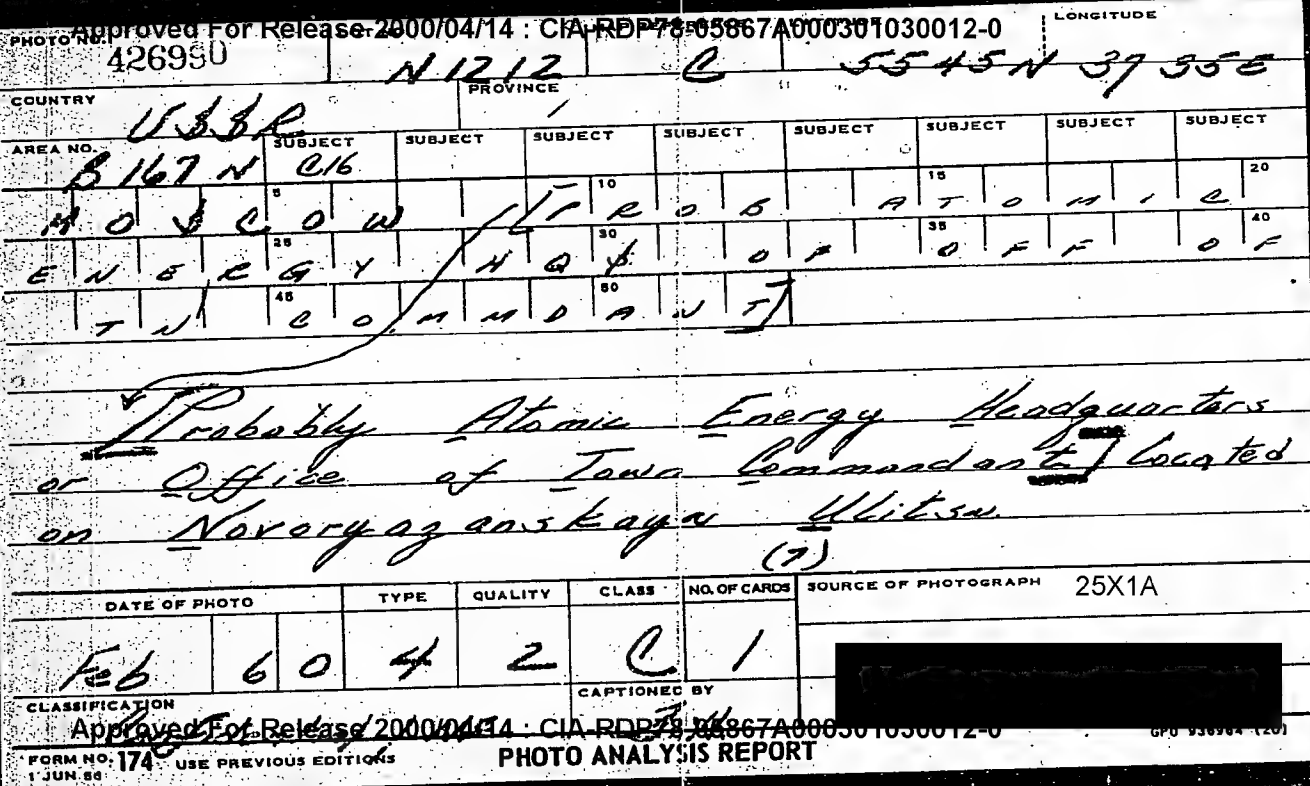 Approved For Release 2000/04/14 : CIA-RDP78-05867A000301030012-0
PHOTO NO. LONGITUDE
426990 N 1212 C 5545N 3735E
COUNTRY PROVINCE
USSR
AREA NO. SUBJECT SUBJECT SUBJECT SUBJECT SUBJECT SUBJECT SUBJECT SUBJECT
B 167 N C16
5 10 15 20
MOSCOW [PROB ATOMIC
25 30 35 40
ENERGY HQS OR OFF OF
45 50
TN COMMDANT]
[Probably Atomic Energy Headquarters
or Office of Town Commandant] located
on Novoryazanskaya Ulitsa.
(7)
DATE OF PHOTO TYPE QUALITY CLASS NO. OF CARDS SOURCE OF PHOTOGRAPH 25X1A
Feb 60 4 2 C 1
CLASSIFICATION CAPTIONED BY
Approved For Release 2000/04/14 : CIA-RDP78-05867A000301030012-0
FORM NO. 174 USE PREVIOUS EDITIONS PHOTO ANALYSIS REPORT GPO 936964 (20)
1 JUN 56